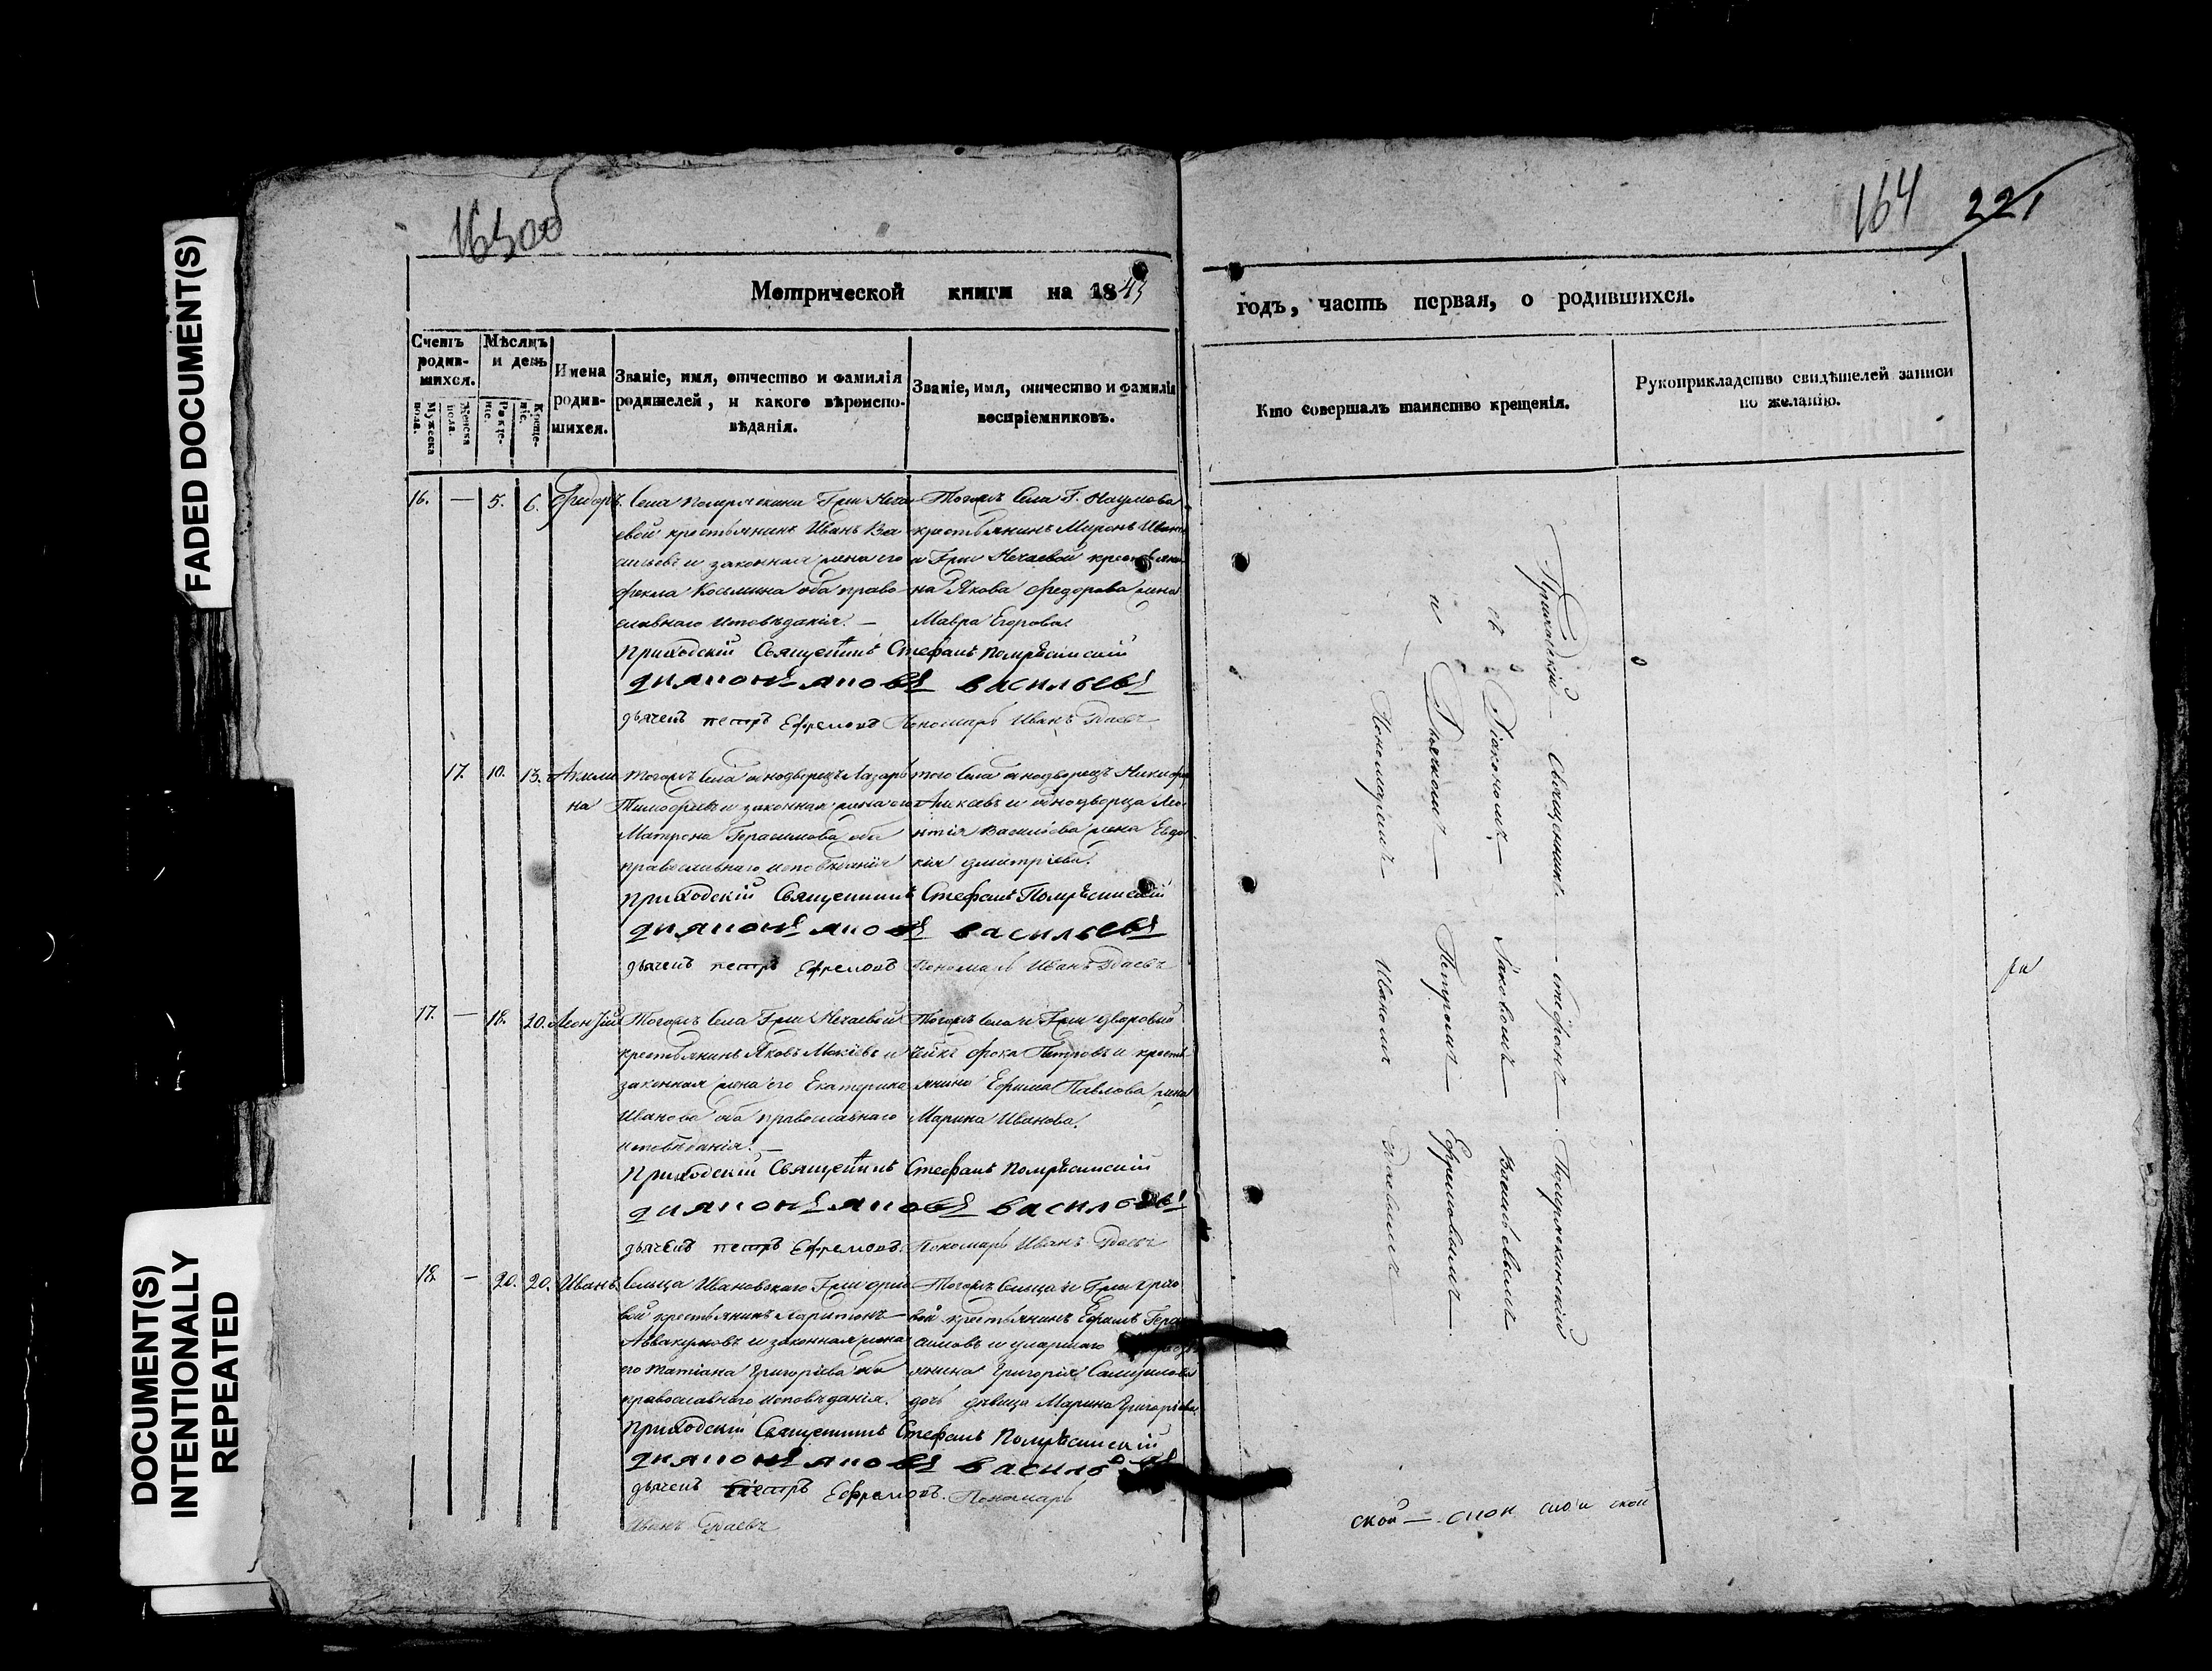 163 об
164
221
FADED DOCUMENT(S)
DOCUMENT(S)
INTENTIONALLY
REPEATED
Метрической книги на 1843
годъ, часть первая, о родившихся.
Счетъ родив-шихся.
Мужеска пола.
Женска пола.
Мѣсяцъ и день
Рожде-ніе.
Креще-ніе.
Имена родив-шихся.
Званіе, имя, отчество и фамилія
родителей, и какого вѣроиспо-
вѣданія.
Званіе, имя, отчество и фамилія
воспріемниковъ.
Кто совершалъ таинство крещенія.
Рукоприкладство свидѣтелей записи
по желанію.
16. — 5. 6. Федоръ
Села Г-жи Неча
евой крестьянинъ Иванъ Ва
сильевъ и законная жена его
Фекла Косьмина оба право
славнаго исповѣданія. —
Тогожъ Села Г. Наумова
крестьянинъ Миронъ Ивановъ
и Г-жи Нечаевой крестьяни
на Якова Федорова жена
Мавра Егорова.
Приходскій Священникъ Стефанъ
дияконъ яковъ васильевъ
дьячекъ петръ Ефремовъ Пономарь Иванъ
17. 10. 13. Акили
на
Тогожъ Села однодворецъ Лазарь
Тимофеевъ и законная жена его
Матрена Герасимова оба
православнаго исповѣданія
того Села однодворецъ Никифоръ
Алексѣевъ и однодворца Лео
нтія Васильева жена Евдо
кія Дмитріева.
Приходскій Священникъ Стефанъ
дияконъ яковъ васильевъ
дьячекъ петръ Ефремовъ Пономарь Иванъ
17. — 18. 20. Леонтій
Тогожъ Села Г-жи Нечаевой
крестьянинъ Яковъ Мокіевъ и
законная жена его Екатерина
Иванова оба православнаго
исповѣданія. —
Тогожъ Села и Г-жи дворовый
Фока Петровъ и кресть
янина Ефима Павлова жена
Марина Иванова.
Приходскій Священникъ Стефанъ
дияконъ яковъ васильевъ
дьячекъ петръ Ефремовъ. Пономарь Иванъ
18. — 20. 20. Иванъ
Сельца Ивановскаго Г-жи
вой крестьянинъ Харитонъ
Аввакумовъ и законная жена
его Татіана Григоріева оба
православнаго исповѣданія.
Тогожъ Сельца и Г-жи
вой крестьянинъ Ефимъ Гера
симовъ и умершаго
Григорія Самуилова
дочь дѣвица Марина Григоріева.
Приходскій Священникъ Стефанъ
дияконъ яковъ
дьячекъ петръ Ефремовъ. Пономарь
Иванъ
Приходскій — Священникъ — Стефанъ —
съ Діакономъ — Іаковомъ — Васильевымъ
и Дьячкомъ — Петромъ — Ефремовымъ —
Пономаремъ — Иваномъ